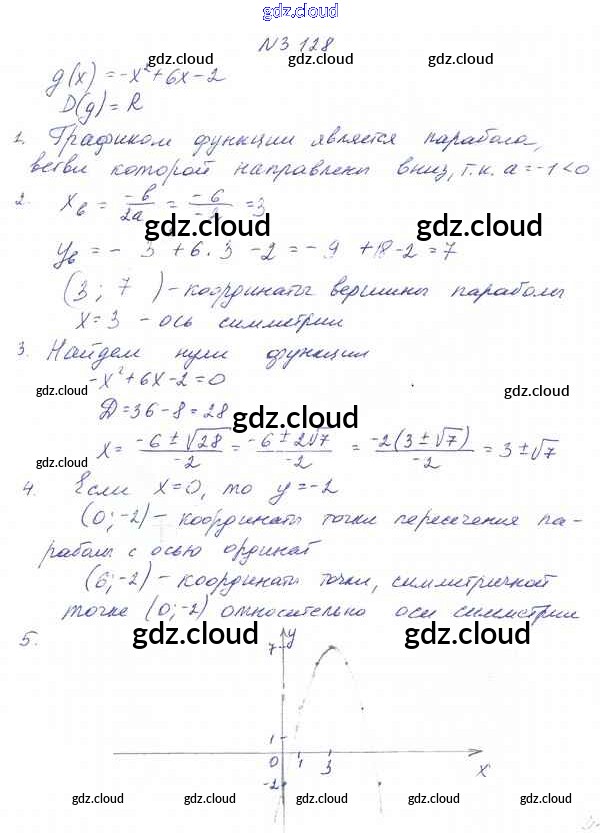 gdz.cloud
N3 128
gdz.cloud gdz.cloud
g(x) = -x² + 6x - 2
D(g) = R
1. Графиком функции является парабола,
ветви которой направлены вниз, т.к. a = -1 < 0
2. xв = -b/2a = -6/-2 = 3
gdz.cloud gdz.cloud
yв = - 3 + 6·3 - 2 = - 9 + 18 - 2 = 7
(3 ; 7 ) - координаты вершины параболы
x = 3 - ось симметрии
3. Найдем нули функции
-x² + 6x - 2 = 0
gdz.cloud gdz.cloud
Д = 36 - 8 = 28
gdz.cloud
x = -6 ± √28/-2 = -6 ± 2√7/-2 = -2(3 ± √7)/-2 = 3 ± √7
gdz.cloud
4. Если x = 0, то y = -2
(0; -2) - координаты точки пересечения па-
раболы с осью ординат
(6; -2) - координаты точки, симметричной
точке (0; -2) относительно оси симметрии
gdz.cloud gdz.cloud
5.
y
7
1
0 1 3 x
-2
gdz.cloud gdz.cloud gdz.cloud